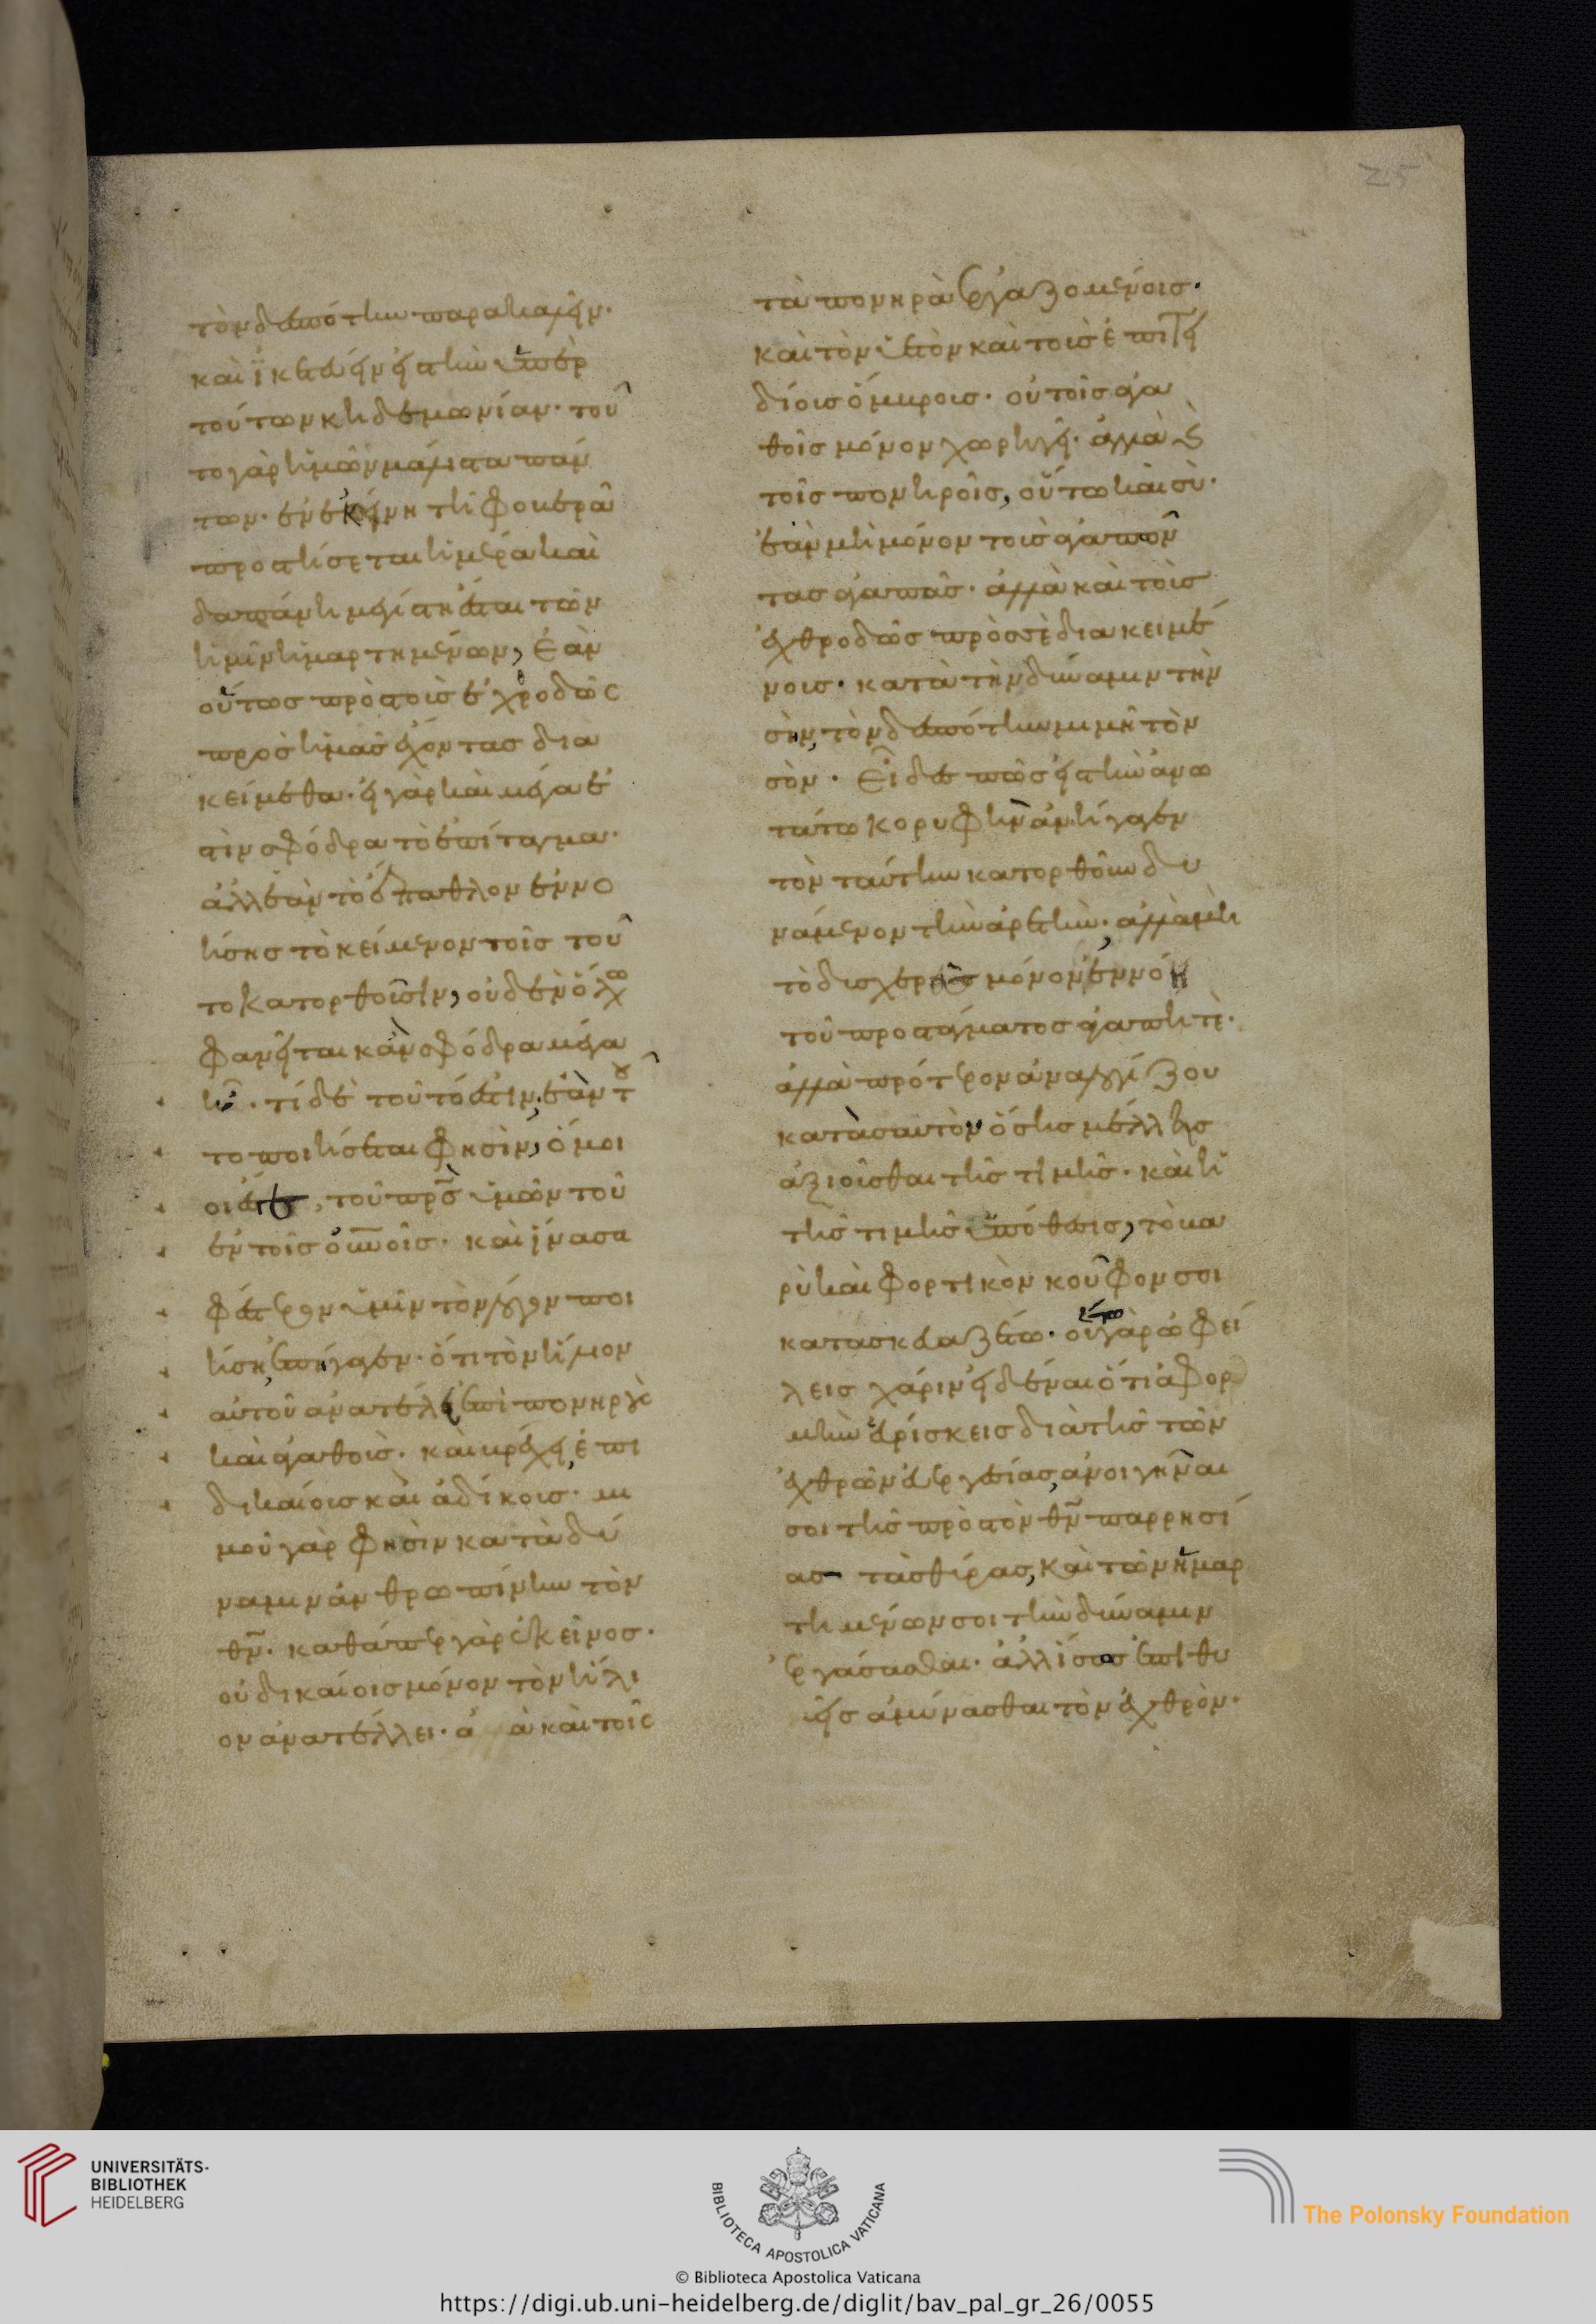 25
τὸν δεσπότην παρακαλεῖν·
καὶ ἱκετεύειν εἰς τὴν ὑπὲρ
τούτων κηδεμονίαν· τοῦ
το γὰρ ἡμῶν μάλιστα πάν
των· ἐν ἐκείνη τῆ φοβερᾶ
προστήσεται ἡμέρα καὶ
δαπάνη μεγίστη ἔσται τῶν
ἡμῖν ἡμαρτημένων, ἐὰν
οὕτως πρὸς τοὺς ἐχθροδῶς
πρὸς ἡμᾶς ἔχοντας δια
κείμεθα· εἰ γὰρ καὶ μέγα ἐ
στὶν σφόδρα τὸ ἐπίταγμα·
ἀλλ' ἐὰν τὸ ἔπαθλον ἐννο
ήσης τὸ κείμενον τοῖς τοῦ
το κατορθοῦσιν, οὐδὲν ὅλως
φανεῖται κἂν σφόδρα μέγα
ἦ· τί δὲ τοῦτό ἐστιν, ἐὰν τοῦ
το ποιήσεται φησὶν, ὅμοι
οι ἔσεσθε, τοῦ πρς ὑμῶν τοῦ
ἐν τοῖς οὐνοῖς· καὶ ἵνα σα
φέστερον ὑμῖν τὸν λόγον ποι
ήση, ἐπήγαγεν· ὅτι τὸν ἥλιον
αὐτοῦ ἀνατέλλει ἐπὶ πονηροὺς
καὶ ἀγαθοὺς· καὶ βρέχει ἐπὶ
δικαίοις καὶ ἀδίκοις· μι
μοῦ γὰρ φησὶν κατὰ δύ
ναμιν ἀνθρωπίνην τὸν
θν· καθάπερ γὰρ ἐκεῖνος·
οὐ δικαίοις μόνον τὸν ἥλι
ον ἀνατέλλει· ἀλλὰ καὶ τοῖς
τὰ πονηρὰ ἐργαζομένοις·
καὶ τὸν ὑετὸν καὶ τοὺς ἐπιτη
δίοις ὄμβροις· οὐ τοῖς ἀγα
θοῖς μόνον χωρηγεῖ· ἀλλὰ καὶ
τοῖς πονηροῖς, οὕτω καὶ σὺ·
ἐὰν μὴ μόνον τοὺς ἀγαπῶν
τας ἀγαπᾶς· ἀλλὰ καὶ τοῖς
ἐχθροδῶς πρὸς σὲ διακειμέ
νοις· κατὰ τὴν δύναμιν τὴν
σὴν, τὸν δεσπότην μιμῆ τὸν
σὸν· εἶδες πῶς εἰς τὴν ἀνω
τάτω κορυφὴν ἀνήγαγεν
τὸν ταύτην κατορθοῦν δυ
νάμενον τὴν ἀρετὴν· ἀλλὰ μὴ
τὸ δυσχερὲς μόνον ἐννόει
τοῦ προστάγματος ἀγαπητὲ·
ἀλλὰ πρότερον ἀναλογίζου
κατὰ σαυτὸν ὅσης μέλλεις
ἀξιοῦσθαι τῆς τιμῆς· καὶ ἡ
τῆς τιμῆς ὑπόθεσις, τὸ βα
ρὺ καὶ φορτικὸν κοῦφόν σοι
κατασκευαζέτω· οὐ γὰρ ὀφεί
λεις χάριν εἰδέναι ὅτι ἀφορ
μὴν εὑρίσκεις διὰ τῆς τῶν
ἐχθρῶν εὐεργεσίας, ἀνοιγῆναι
σοι τῆς πρὸς τὸν θν παρρησί
ας τὰς θύρας, καὶ τῶν ἡμαρ
τημένων σοι τὴν δύναμιν
ἐργάσασθαι· ἀλλ' ἴσως ἐπιθυ
μεῖς ἀμύνασθαι τὸν ἐχθρὸν·
UNIVERSITÄTS-
BIBLIOTHEK
HEIDELBERG
BIBLIOTECA APOSTOLICA VATICANA
© Biblioteca Apostolica Vaticana
The Polonsky Foundation
https://digi.ub.uni-heidelberg.de/diglit/bav_pal_gr_26/0055